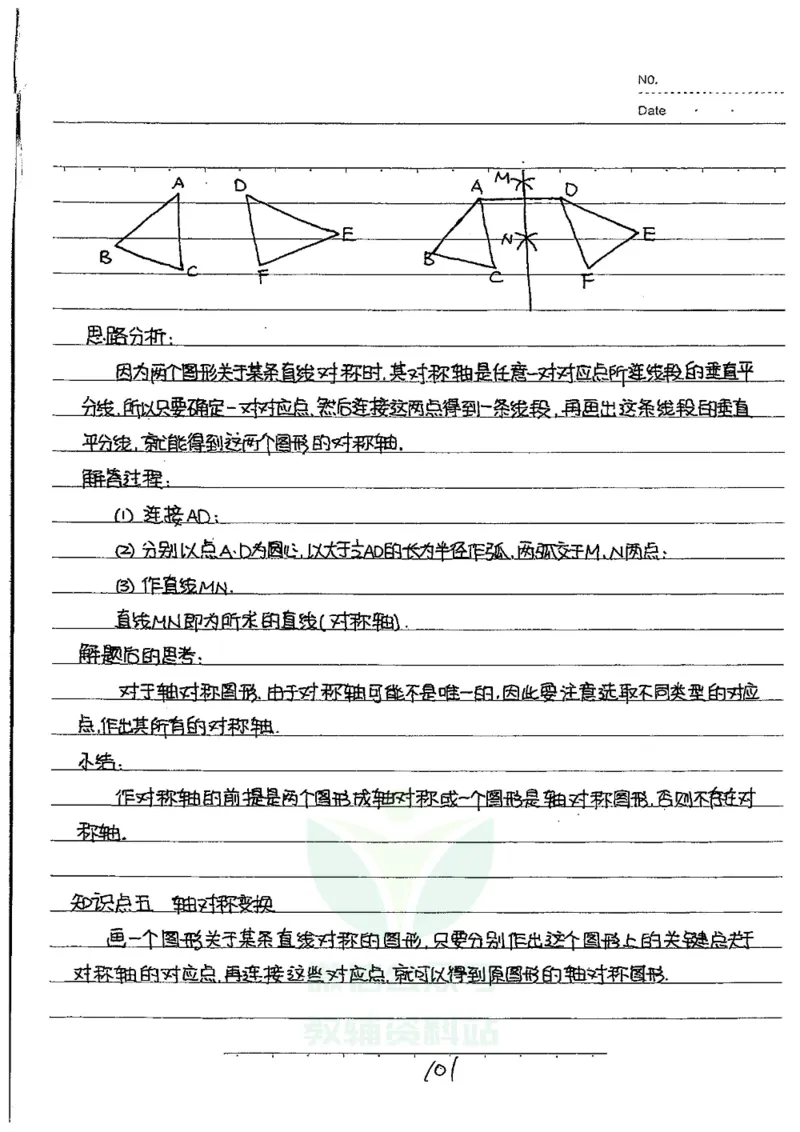 NO.
Date
A D
E
B
C F
A M D
N E
B
C F
思路分析:
因为两个图形关于某条直线对称时,其对称轴是任意一对对应点所连线段的垂直平
分线,所以只要确定一对对应点,然后连接这两点得到一条线段,再画出这条线段的垂直
平分线,就能得到这两个图形的对称轴.
解答过程:
(1) 连接AD;
(2) 分别以点A、D为圆心,以大于½AD的长为半径作弧,两弧交于M、N两点;
(3) 作直线MN.
直线MN即为所求的直线(对称轴).
解题后的思考:
对于轴对称图形,由于对称轴可能不是唯一的,因此要注意选取不同类型的对应
点,作出其所有的对称轴.
小结:
作对称轴的前提是两个图形成轴对称或一个图形是轴对称图形,否则不存在对
称轴.
知识点五 轴对称变换
画一个图形关于某条直线对称的图形,只要分别作出这个图形上的关键点关于
对称轴的对应点,再连接这些对应点,就可以得到原图形的轴对称图形.
教辅资料站
101